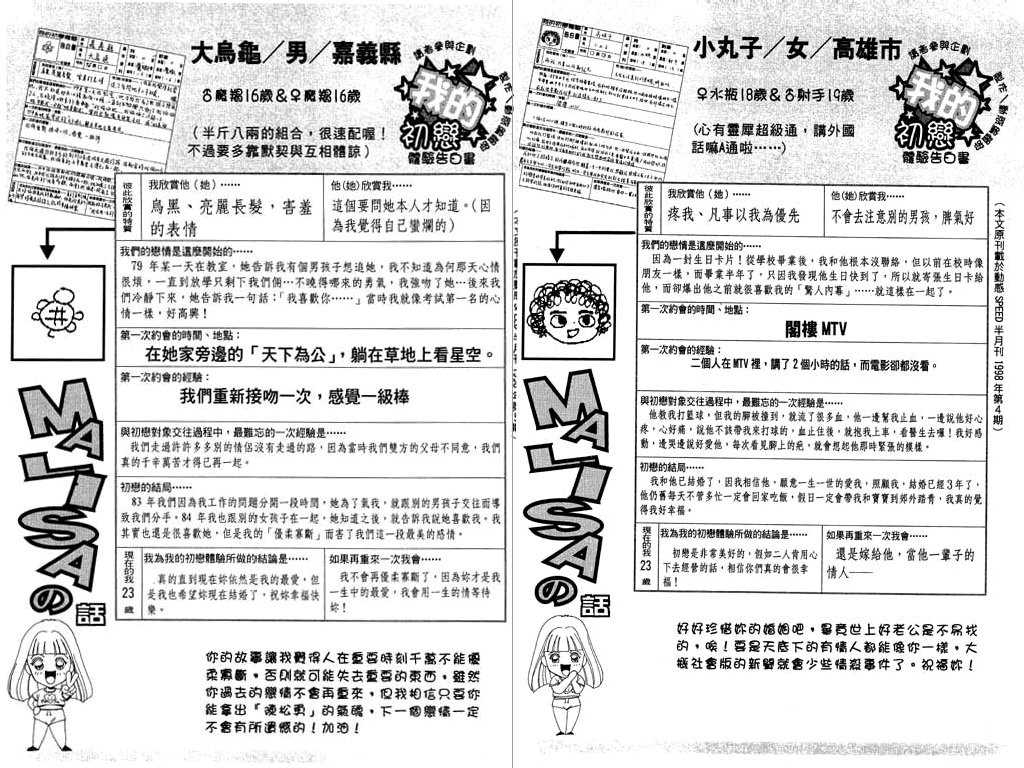 大烏龜／男／嘉義縣
♁魔羯16歲&♀魔羯16歲
（半斤八兩的組合，很速配喔！
不過要多靠默契與互相體諒）
讀者參與企劃
我的
初戀
體驗告白書
彼此欣賞的特質
我欣賞他（她）……
烏黑、亮麗長髮，害羞
的表情
他(她)欣賞我……
這個要問她本人才知道。（因
為我覺得自己蠻爛的）
我們的戀情是這麼開始的……
79 年某一天在教室，她告訴我有個男孩子想追她，我不知道為何那天心情
很煩，一直到放學只剩下我們倆…不曉得哪來的勇氣，我強吻了她…後來我
們冷靜下來，她告訴我一句話：「我喜歡你……」當時我就像考試第一名的心
情一樣，好高興！
第一次約會的時間、地點：
在她家旁邊的「天下為公」，躺在草地上看星空。
第一次約會的經驗：
我們重新接吻一次，感覺一級棒
與初戀對象交往過程中，最難忘的一次經驗是……
我們走過許許多多別的情侶沒有走過的路，因為當時我們雙方的父母不同意，我們
真的千辛萬苦才得已再一起。
初戀的結局……
83 年我們因為我工作的問題分開一段時間，她為了氣我，就跟別的男孩子交往而導
致我們分手，84 年我也跟別的女孩子在一起，她知道之後，就告訴我說她喜歡我。我
其實也還是很喜歡她，但是我的「優柔寡斷」而害了我們這一段最美的感情。
現在的我23歲
我為我的初戀體驗所做的結論是……
真的直到現在妳依然是我的最愛，但
是我也希望妳現在結婚了，祝妳幸福快
樂。
如果再重來一次我會……
我不會再優柔寡斷了，因為妳才是我
一生中的最愛，我會用一生的情等待
妳！
MALISAの話
你的故事讓我覺得人在重要時刻千萬不能優
柔寡斷，否則就可能失去重要的東西，雖然
你過去的戀情不會再重來，但我相信只要你
能拿出「陳松勇」的氣魄，下一個戀情一定
不會有所遺憾的！加油！
小丸子／女／高雄市
♀水瓶18歲&♁射手19歲
（心有靈犀超級通，講外國
話嘛A通啦……）
讀者參與企劃
我的
初戀
體驗告白書
彼此欣賞的特質
我欣賞他（她）……
疼我、凡事以我為優先
他(她)欣賞我……
不會去注意別的男孩，脾氣好
我們的戀情是這麼開始的……
因為一封生日卡片！從學校畢業後，我和他根本沒聯絡，但以前在校時像
朋友一樣，而畢業半年了，只因我發現他生日快到了，所以就寄張生日卡給
他，而卻爆出他之前就很喜歡我的「驚人內幕」……就這樣在一起了。
第一次約會的時間、地點：
閣樓 MTV
第一次約會的經驗：
二個人在 MTV 裡，講了 2 個小時的話，而電影卻都沒看。
與初戀對象交往過程中，最難忘的一次經驗是……
他教我打籃球，但我的腳被撞到，就流了很多血，他一邊幫我止血，一邊說他好心
疼，心好痛，說他不該帶我來打球的，血止住後，就抱我上車，看醫生去囉！我好感
動，邊哭邊說好愛他，每次看見腳上的疤，就會想起他那時緊張的模樣。
初戀的結局……
我和他已結婚了，因我相信他，願意一生一世的愛我，照顧我，結婚已經3年了，
他仍舊每天不管多忙一定會回家吃飯，假日一定會帶我和寶寶到郊外踏青，我真的覺
得我好幸福。
現在的我23歲
我為我的初戀體驗所做的結論是……
初戀是非常美好的，假如二人肯用心
下去經營的話，相信你們真的會很幸
福！
如果再重來一次我會……
還是嫁給他，當他一輩子的
情人——
（本文原刊載於動感 SPED 半月刊 1998 年第 4 期）
MALISAの話
好好珍惜妳的婚姻吧，畢竟世上好老公是不易找
的，唉！要是天底下的有情人都能像你一樣，大
概社會版的新聞就會少些情殺事件了。祝福妳！